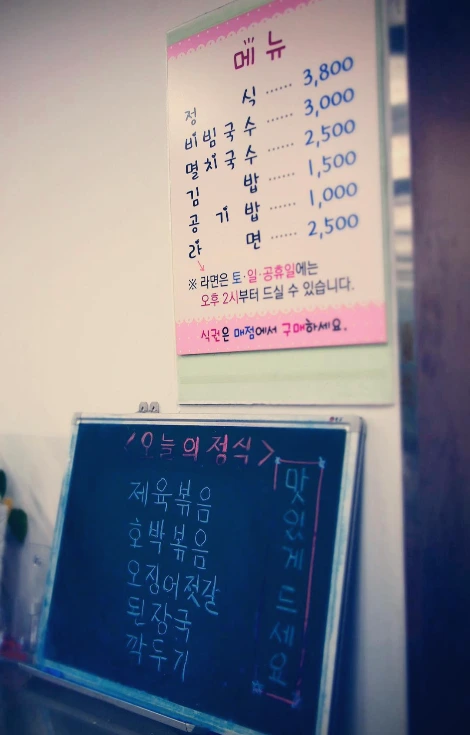 메뉴
정식 ...... 3,800
비빔국수 ...... 3,000
멸치국수 ...... 2,500
김밥 ...... 1,500
공기밥 ...... 1,000
라면 ...... 2,500
※ 라면은 토·일·공휴일에는
오후 2시부터 드실 수 있습니다.
식권은 매점에서 구매하세요.
<오늘의 정식>
제육볶음
호박볶음
오징어젓갈
된장국
깍두기
맛있게 드세요